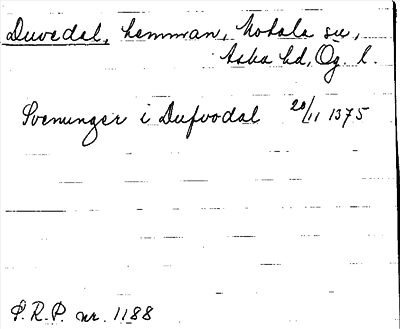 Duvedal, hemman, Motala sn,
Aska hd, Ög. l.
Svenunger i Dufvodal 20/11 1375
P.R.P. nr. 1188